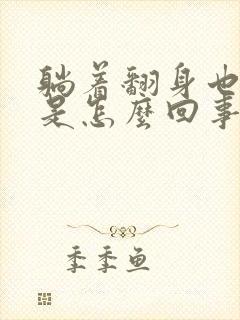 躺着翻身也
是怎麼回事
季季鱼